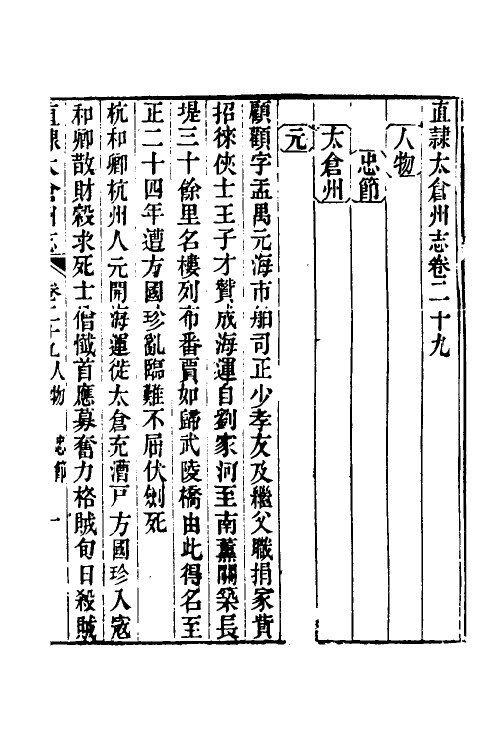 直隷太倉州志卷二十九
人物
忠節
太倉州
元
顧顧字孟禺元海市舶司正少孝友及繼父職捐家貲
招徠俠士王子才贊成海運自劉家河至南薰關築長
堤三十餘里名樓列布番賈如歸武陵橋由此得名至
正二十四年遭方國珍亂臨難不屈伏劍死
杭和卿杭州人元開海運徙太倉充漕戸方國珍入寇
和卿散財穀求死士僧懺首應募奮力格賊旬日殺賊
直隷太倉州志 卷二十九人物 忠節 一